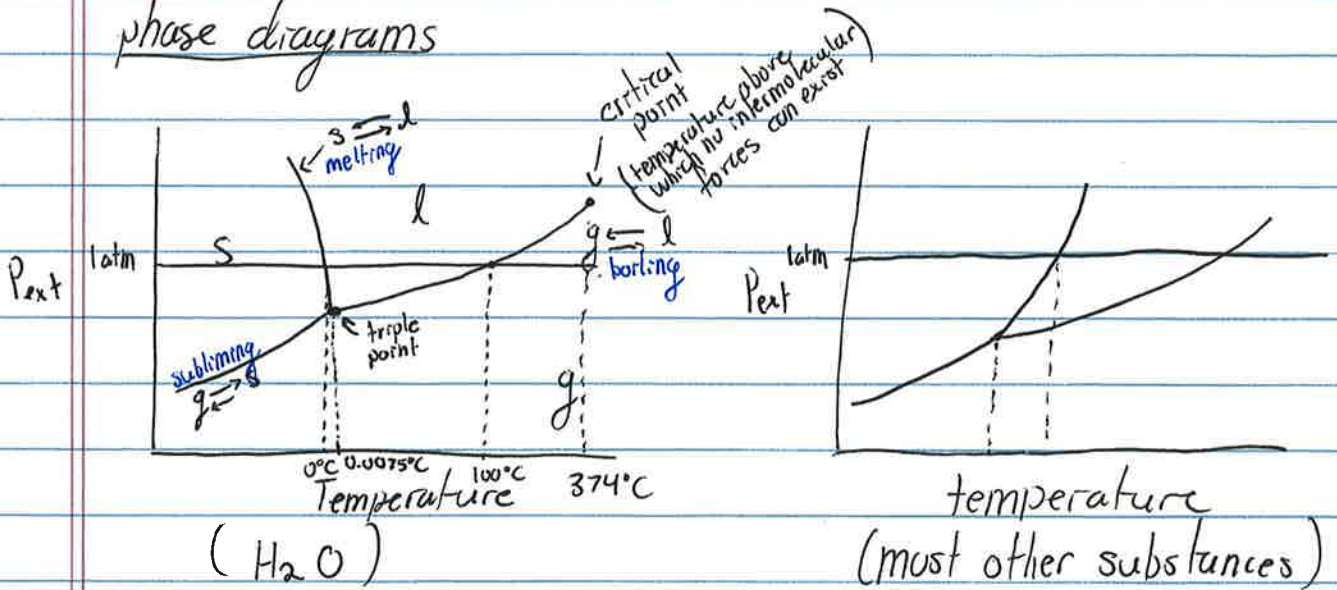 phase diagrams
critical
point
(temperature above
which no intermolecular)
forces can exist
s ⇄ l
melting
l
S
1atm
Pext
g ⇄ l
boiling
triple
point
subliming
g ⇄ s
g
0°C 0.0075°C 100°C 374°C
Temperature
(H₂O)
1atm
Pext
temperature
(most other substances)